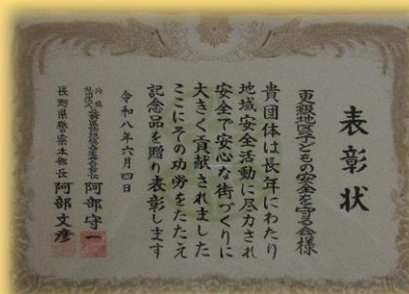 表彰状
更級地区子どもの安全を守る会様
貴団体は長年にわたり
地域安全活動に尽力され
安全で安心な街づくりに
大きく貢献されました
ここにその功労をたたえ
記念品を贈り表彰します
令和八年六月四日
阿部守一
長野県警察本部長 阿部文彦